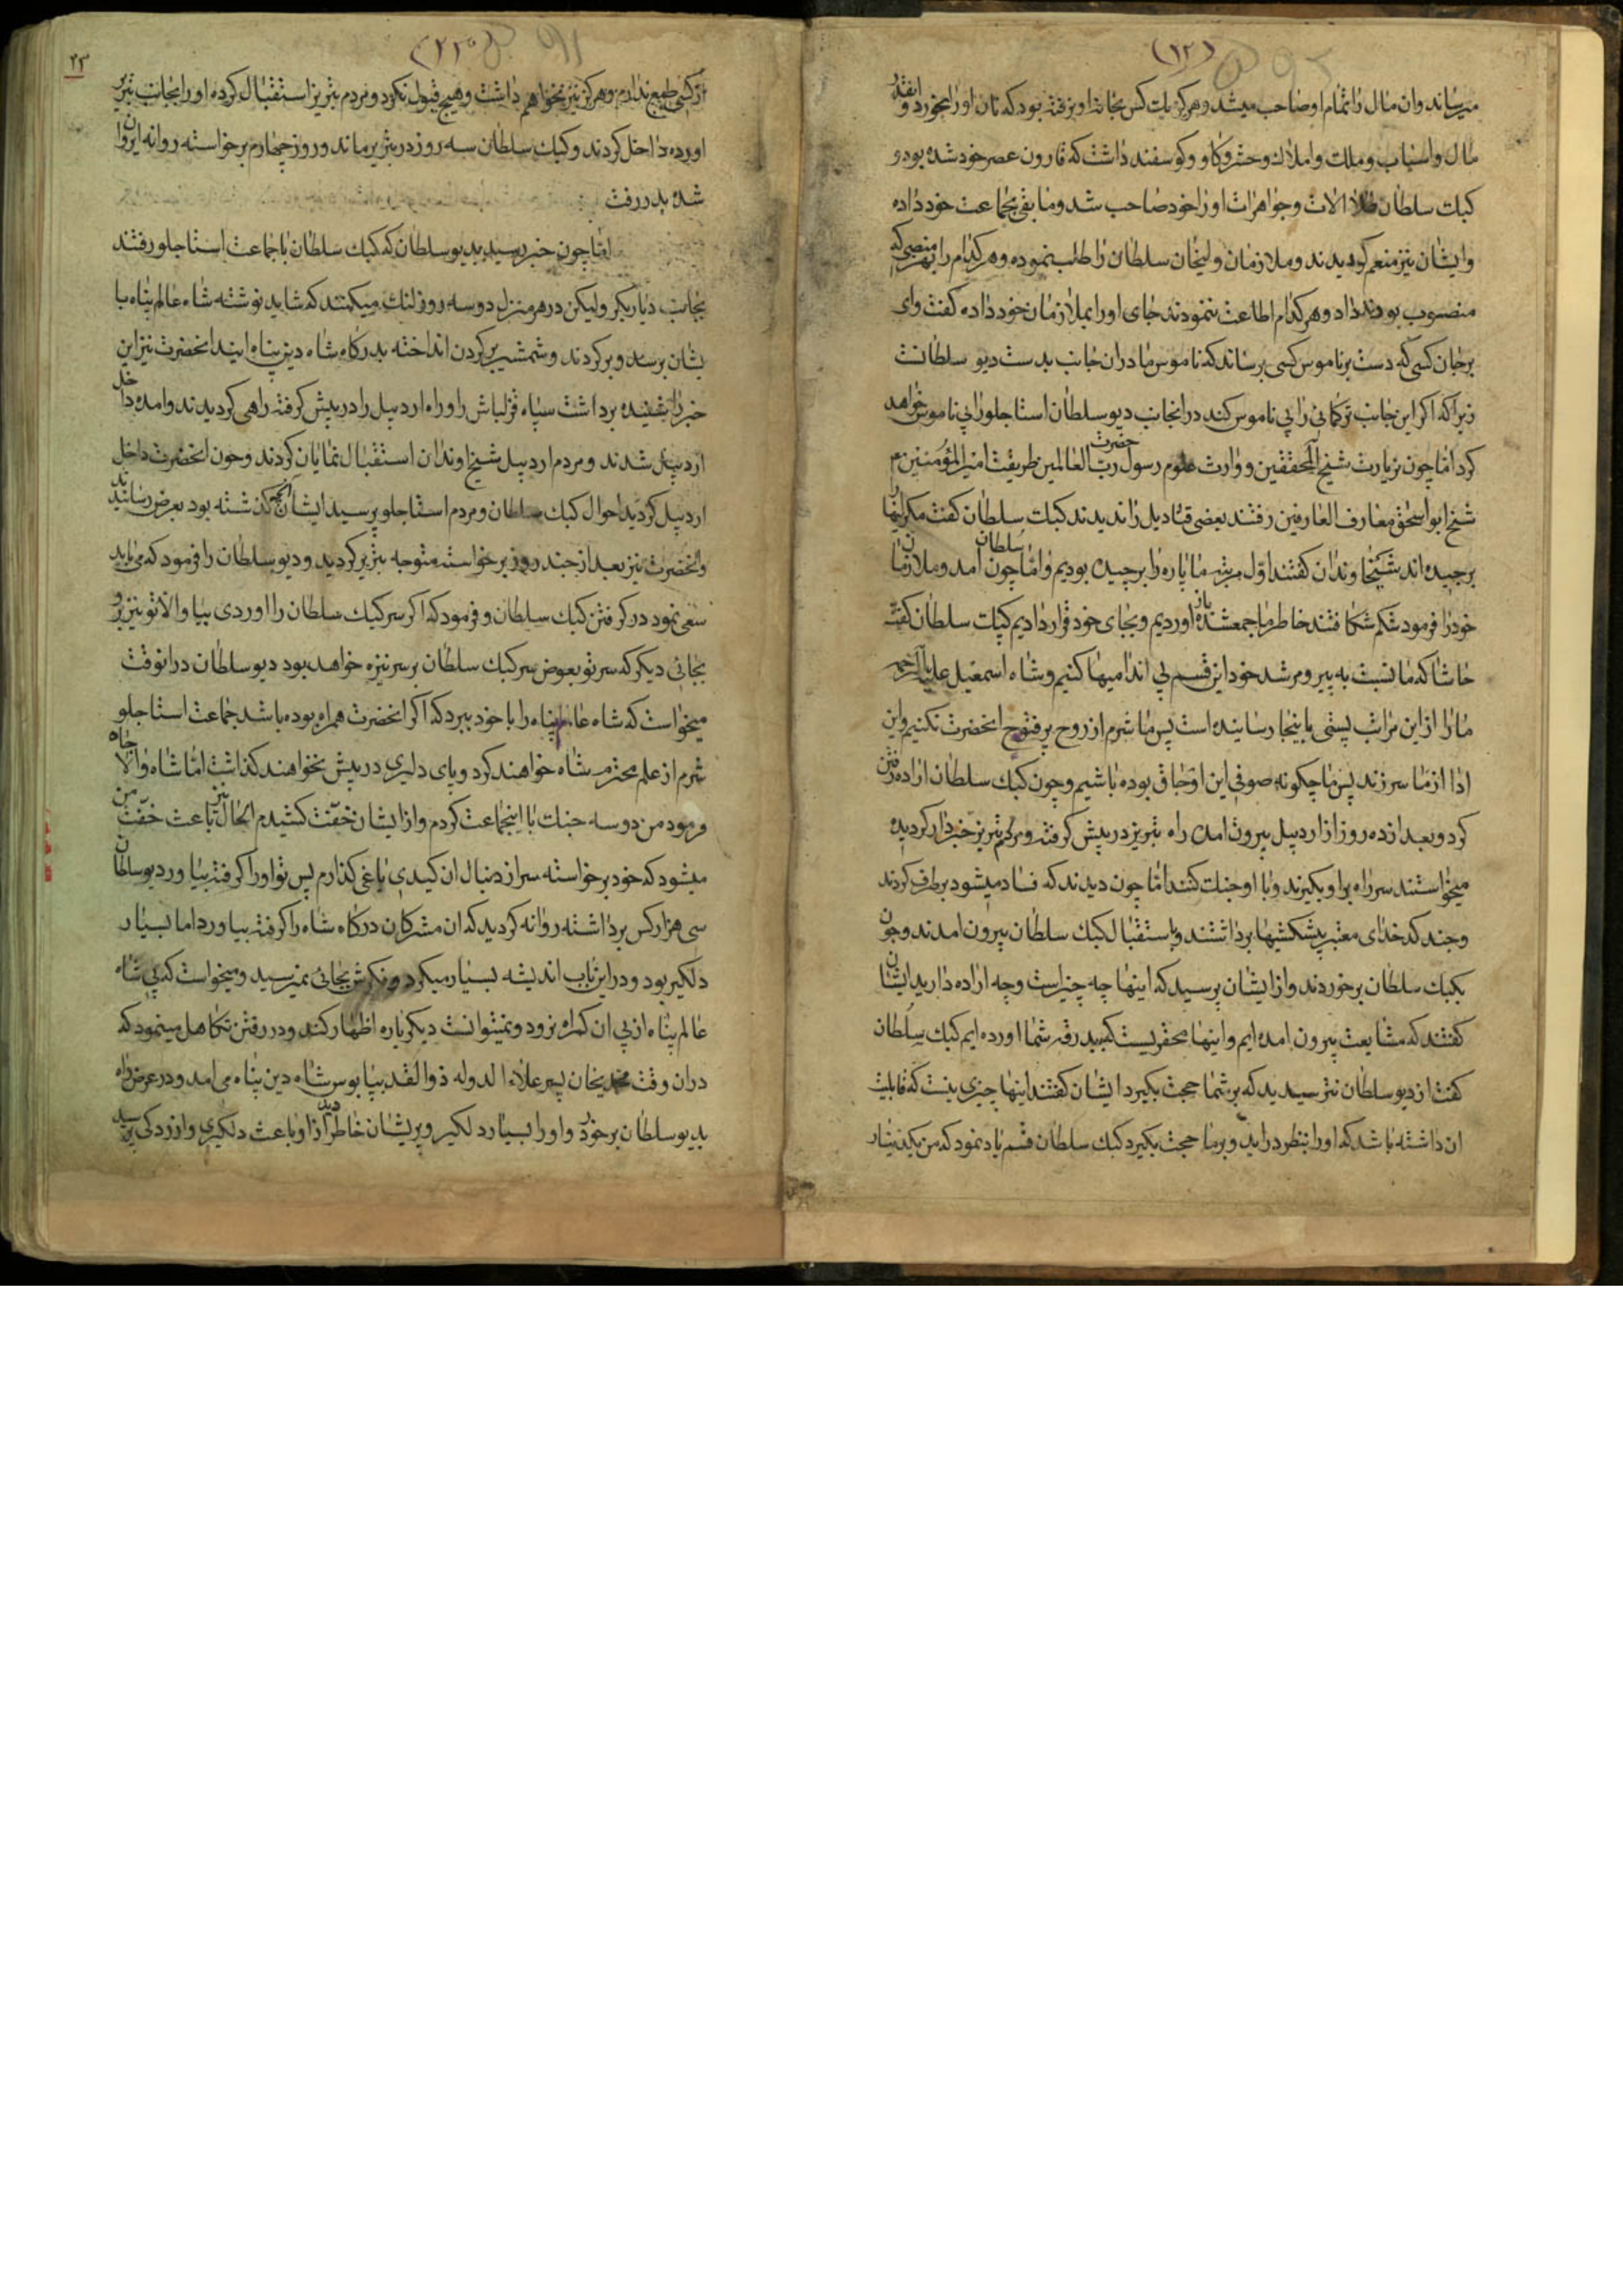 (۱۲)
میرساند و ان مال را تمام او صاحب میشد و هرکز یك کس بخانه او نرفته بود که نان او را بخورد و انقدر
مال و اسباب و ملك و املاك و حشر و کاو و کوسفند داشت که قارون عصر خود شده بود و
کبك سلطان طلا الات و جواهرات او را خود صاحب شد و مابقی بجماعت خود داده
و ایشان نیز منعم کردیدند و ملازمان ولیجان سلطان را طلب نموده و هر کدام را بهر منصبی که
منصوب بودند داد و هر کدام اطاعت ننمودند جای او را بملازمان خود داده کفت وای
بر جان کسی که دست بر ناموس کسی برساند که ناموس ما در ان جانب بدست دیو سلطانست
زیرا که اکر این جانب ترکمانی را بی ناموس کند در انجانب دیو سلطان استاجلو را بی ناموس خواهد
کرد اما چون بزیارت شیخ المحققین و وارث علوم حضرت رسول رب العالمین طریقت امیر المؤمنین م
شیخ ابو اسحق معارف العارفین رفتند بعضی قنادیل را ندیدند کبك سلطان کفت مکر اینها را
برچیده اند شیخاوندان کفتند اول مرتبه ما پاره را برچیده بودیم و اما چون سلطان امد و ملازمان
خود را فرمود شکم شکافتند خاطر ما جمع شده باز اوردیم و بجای خود قرار دادیم کبك سلطان کفته
حاشا که ما نسبت به پیر و مرشد خود این قسم بی اندامیها کنیم و شاه اسمعیل علیه الرحمه
ما را از این مراتب پستی باینجا رسانیده است پس ما شرم از روح پر فتوح انحضرت نکنیم و این
ادا از ما سر زند پس ما چکونه صوفی این اوجاق بوده باشیم و چون کبك سلطان اراده رفتن
کرد و بعد از ده روز از اردبیل بیرون امده راه تبریز در پیش کرفته و مردم تبریز خبردار کردیده
میخواستند سر راه بر او بکیرند و با او جنك کنند اما چون دیدند که فساد میشود بر طرف کردند
و چند کدخدای معتبر پیشکشیها برداشتند و باستقبال کبك سلطان بیرون امدند و چون
بکبك سلطان برخوردند و از ایشان پرسید که اینها چه چیز است و چه اراده دارید ایشان
کفتند که مشایعت بیرون امده ایم و اینها محقریست که بدرقه شما اورده ایم کبك سلطان
کفت از دیو سلطان نترسیدید که بر شما حجت بکیرد ایشان کفتند اینها چیزی نیست که قابلیت
ان داشته باشد که او را بنظر در اید و بر ما حجت بکیرد کبك سلطان قسم یاد نمود که من یکدینار
(۲۳)
۲۳
از کسی طمع ندارم و هرکز نیز نخواهم داشت و هیچ قبول نکرد و مردم تبریز استقبال کرده او را بجانب تبریز
اورده داخل کردند و کبك سلطان سه روز در تبریز ماند و روز چهارم برخواسته روانه ایروان
شده بدر رفت
اما چون خبر رسید بدیو سلطان که کبك سلطان با جماعت استاجلو رفتند
بجانب دیاربکر ولیکن در هر منزل دو سه روز لنك میکنند که شاید نوشته شاه عالم پناه با
یشان برسد و برکردند و شمشیر بر کردن انداخته بدرکاه شاه دین پناه ایند انحضرت نیز این
خبر را شنیده برداشت سپاه قزلباش را و راه اردبیل را در پیش کرفته راهی کردیدند و امده داخل
اردبیل شدند و مردم اردبیل شیخاوندان استقبال نمایان کردند و چون انحضرت داخل
اردبیل کردید احوال کبك سلطان و مردم استاجلو پرسید ایشان انچه کذشته بود بعرض رسانیدند
و انحضرت نیز بعد از چند روز برخواسته متوجه تبریز کردید و دیو سلطان را فرمود که می باید
سعی نمود در کرفتن کبك سلطان و فرمود که اکر سر کبك سلطان را اوردی بیا و الا تو نیز برو
بجائی دیکر که سر تو بعوض سر کبك سلطان بر سر نیزه خواهد بود دیو سلطان در انوقت
میخواست که شاه عالم پناه را با خود ببرد که اکر انحضرت همراه بوده باشد جماعت استاجلو
شرم از علم محترم شاه خواهند کرد و پای دلیری در پیش نخواهند کذاشت اما شاه والا جاه
فرمود من دو سه جنك با اینجماعت کردم و از ایشان خفت کشیدم الحال نیز باعث خفت من
میشود که خود برخواسته سر از دنبال ان کیدی یاغی کذارم پس تو او را کرفته بیاور دیو سلطان
سی هزار کس برداشته روانه کردید که ان مشرکان درکاه شاه را کرفته بیاورد اما بسیار
دلکیر بود و در این باب اندیشه بسیار میکرد و فکرش بجائی نمیرسید و میخواست که بی شاه
عالم پناه از پی ان کمراه نرود و نمیتوانست دیکر باره اظهار کند و در رفتن تکاهل مینمود که
در ان وقت محمدیخان پسر علاء الدوله ذو القدر بپا بوس شاه دین پناه می امد و در عرض راه
بدیو سلطان برخورد و او را بسیار دلکیر و پریشان خاطر دید از او باعث دلکیری و ازردکی پرسید